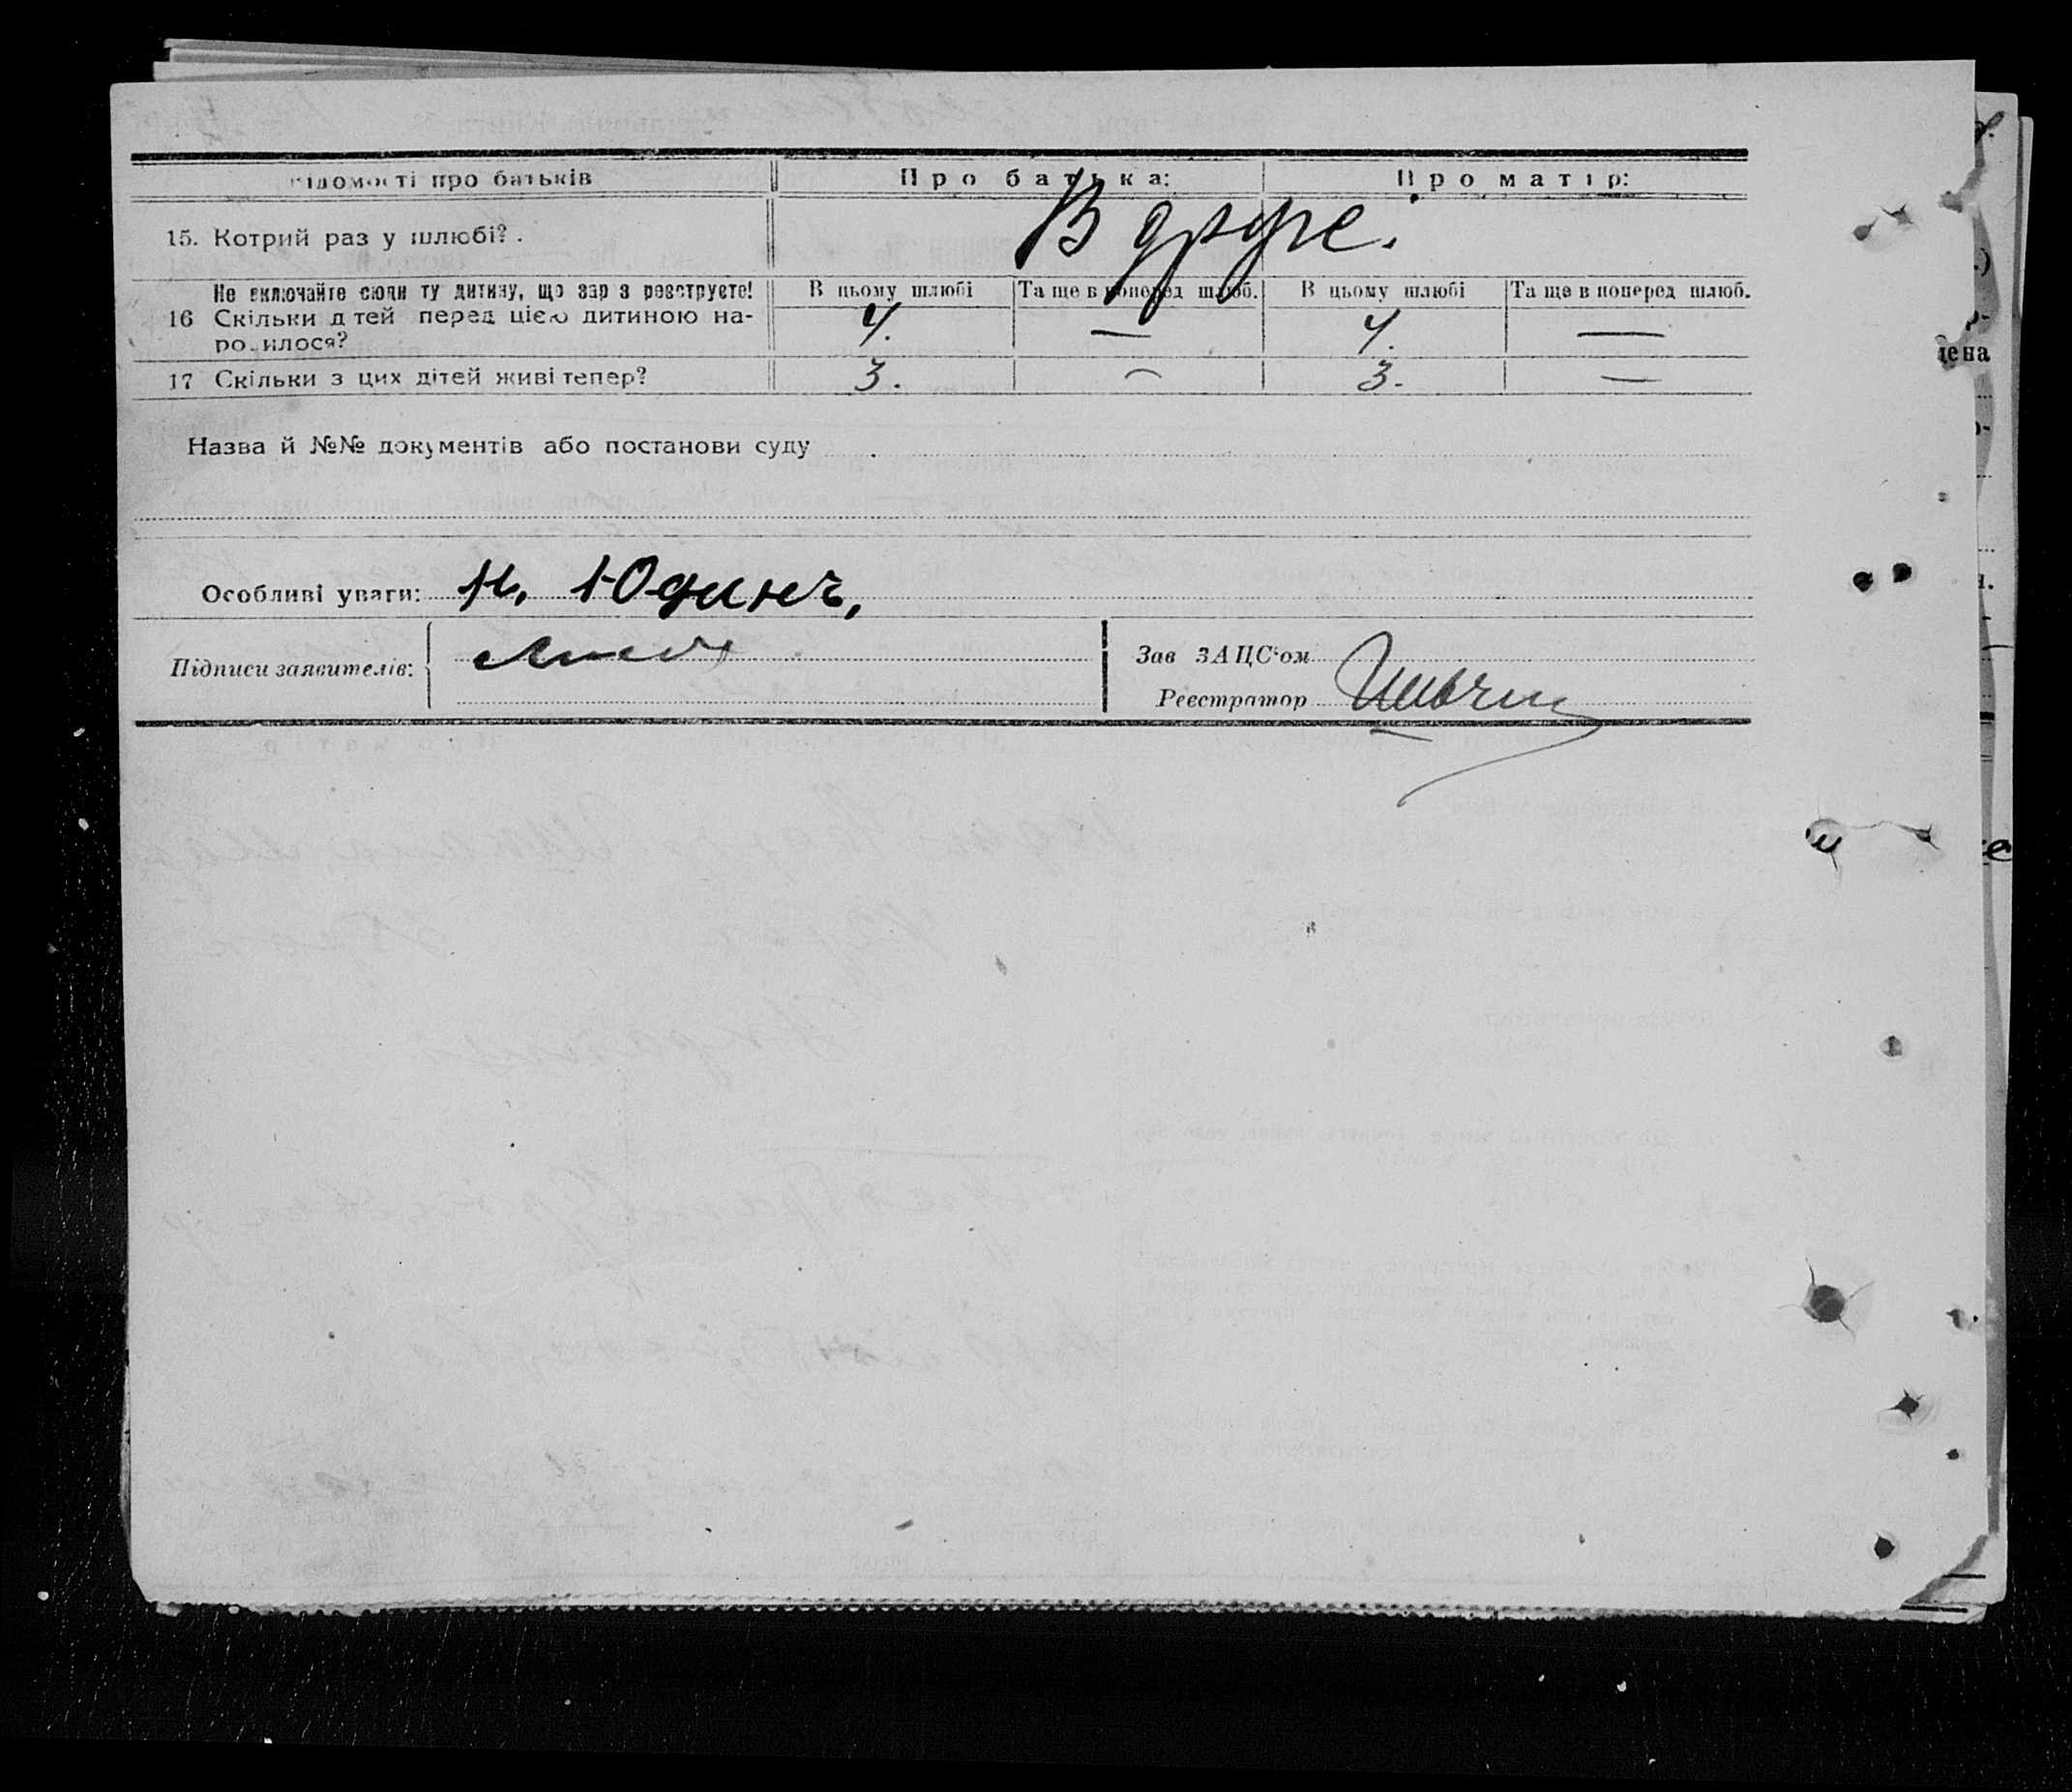 відомості про батьків Про батька: Про матір:
15. Котрий раз у шлюбі? . В друге.
Не включайте сюди ту дитину, що зар з реєструєте! В цьому шлюбі Та ще в поперед шлюб. В цьому шлюбі Та ще в поперед шлюб.
16 Скільки д тей перед цією дитиною на-
родилося? 4. — 4. —
17 Скільки з цих дітей живі тепер? 3. — 3. —
Назва й №№ документів або постанови суду
Особливі уваги: Н. Юдинъ,
Підписи заявителів: Зав ЗАЦС'ом
Реєстратор
дена